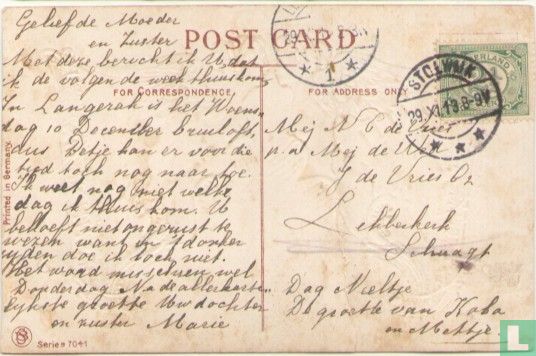 Geliefde Moeder
en Zuster
POST CARD
Met deze bericht ik U dat
ik de volgende week thuiskom
FOR CORRESPONDENCE.
FOR ADDRESS ONLY
In Langerak is het Woens
dag 10 December bruiloft
dus Betje kan er voor die
tijd toch nog naar toe.
ik weet nog niet welke
dag ik thuis kom. U
behoeft niet ongerust te
wezen want in 't donker
rijden doe ik toch niet.
Het word misschien wel
Donderdag. Na de allerharte
lijkste groette Uw dochter
en zuster Marie
Printed in Germany.
Serie 7041
STOLWIJK
29.XI.13.8-9V
Mej N C de Vries
p.a Mej de W
J de Vries Cz
Lekkerkerk
Schuagt
Dag Neeltje
De groette van Koba
en Metje.
L